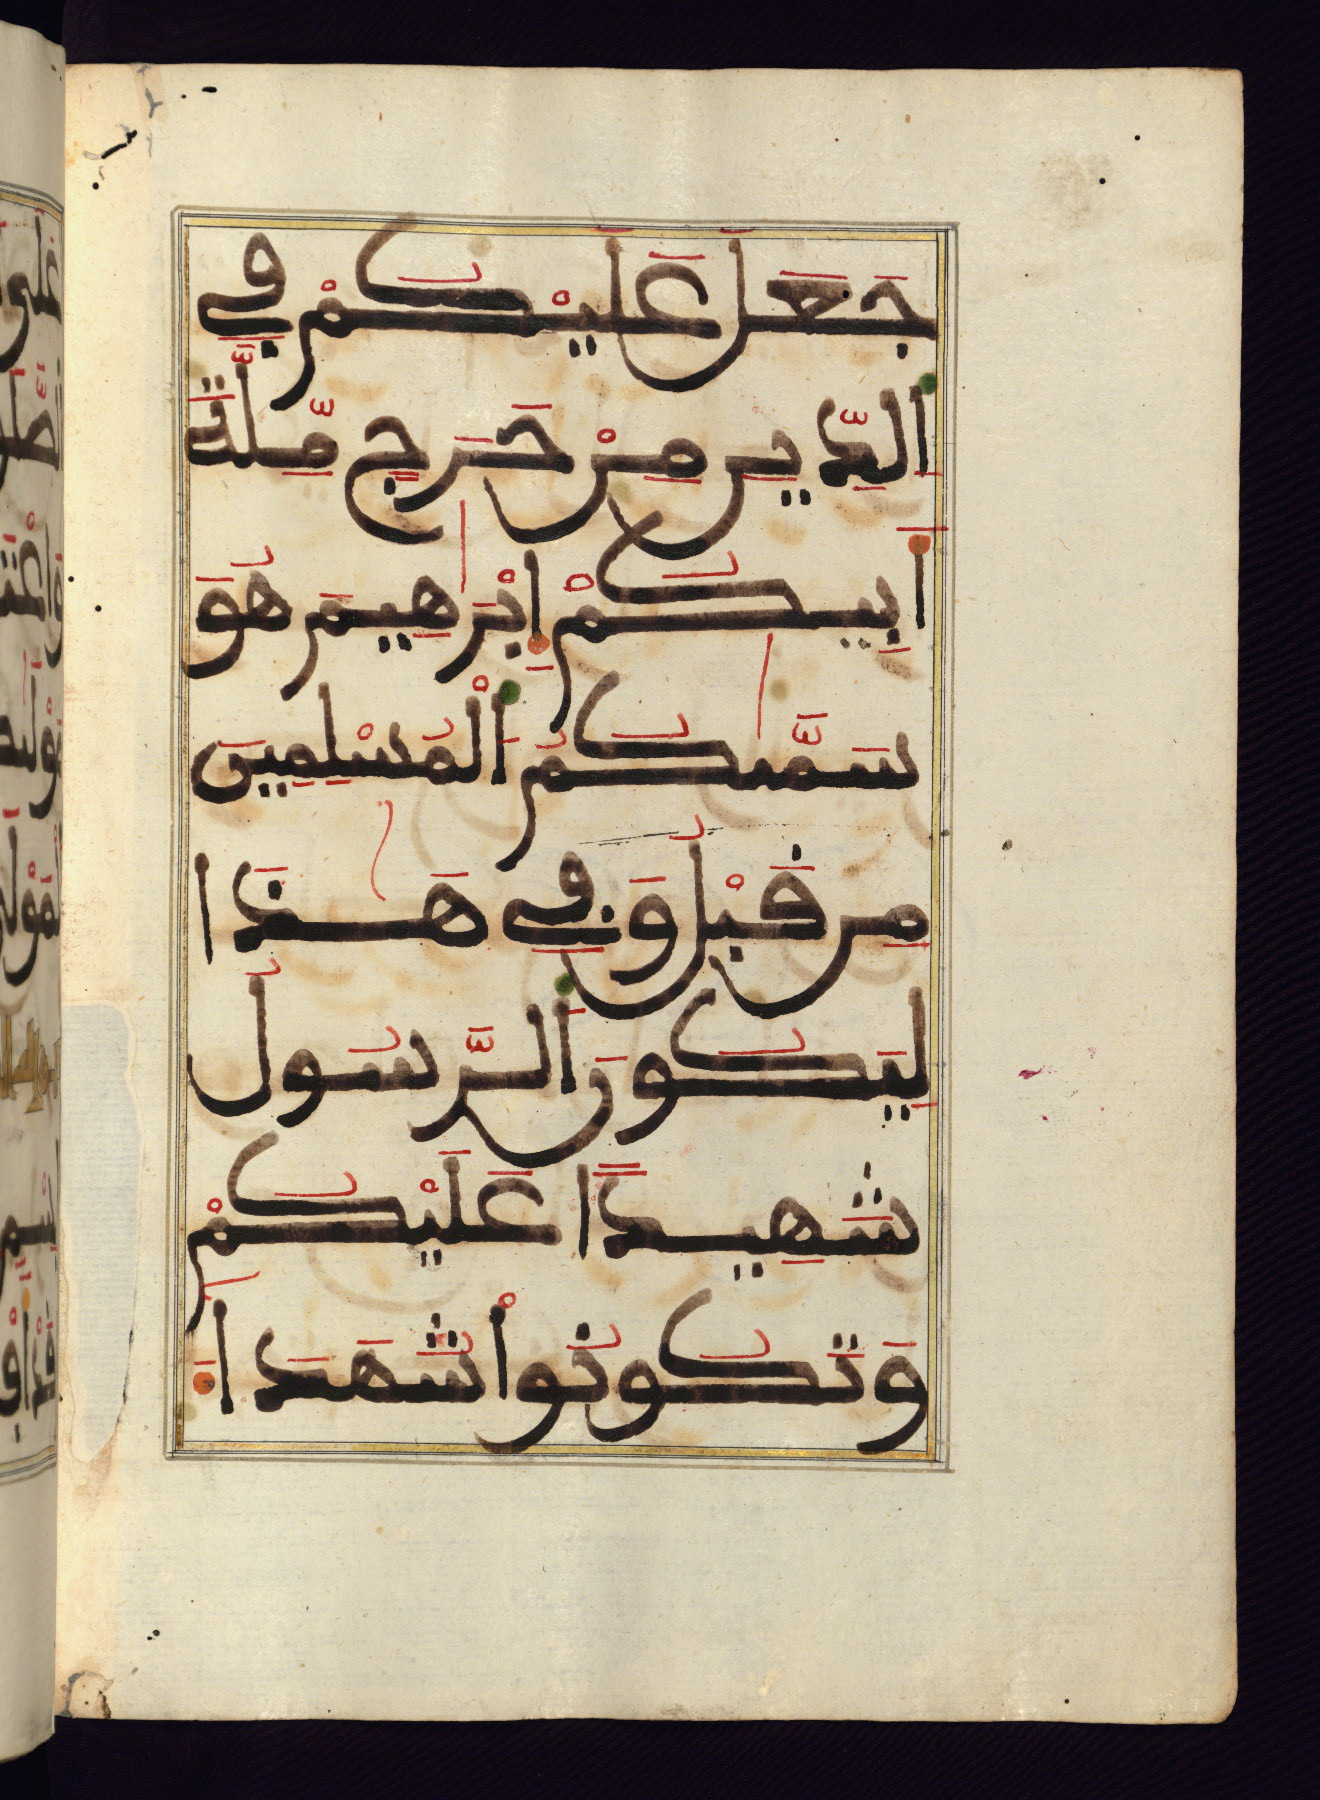 جَعَلَ عَلَيْكُمْ فِي
اَلدِّينِ مِنْ حَرَجٍ مِّلَّةَ
أَبِيكُمْ إِبْرَٰهِيمَ هُوَ
سَمَّىٰكُمُ اَلْمُسْلِمِينَ
مِن قَبْلُ وَفِي هَٰذَا
لِيَكُونَ اَلرَّسُولُ
شَهِيدًا عَلَيْكُمْ
وَتَكُونُواْ شُهَدَآءَ